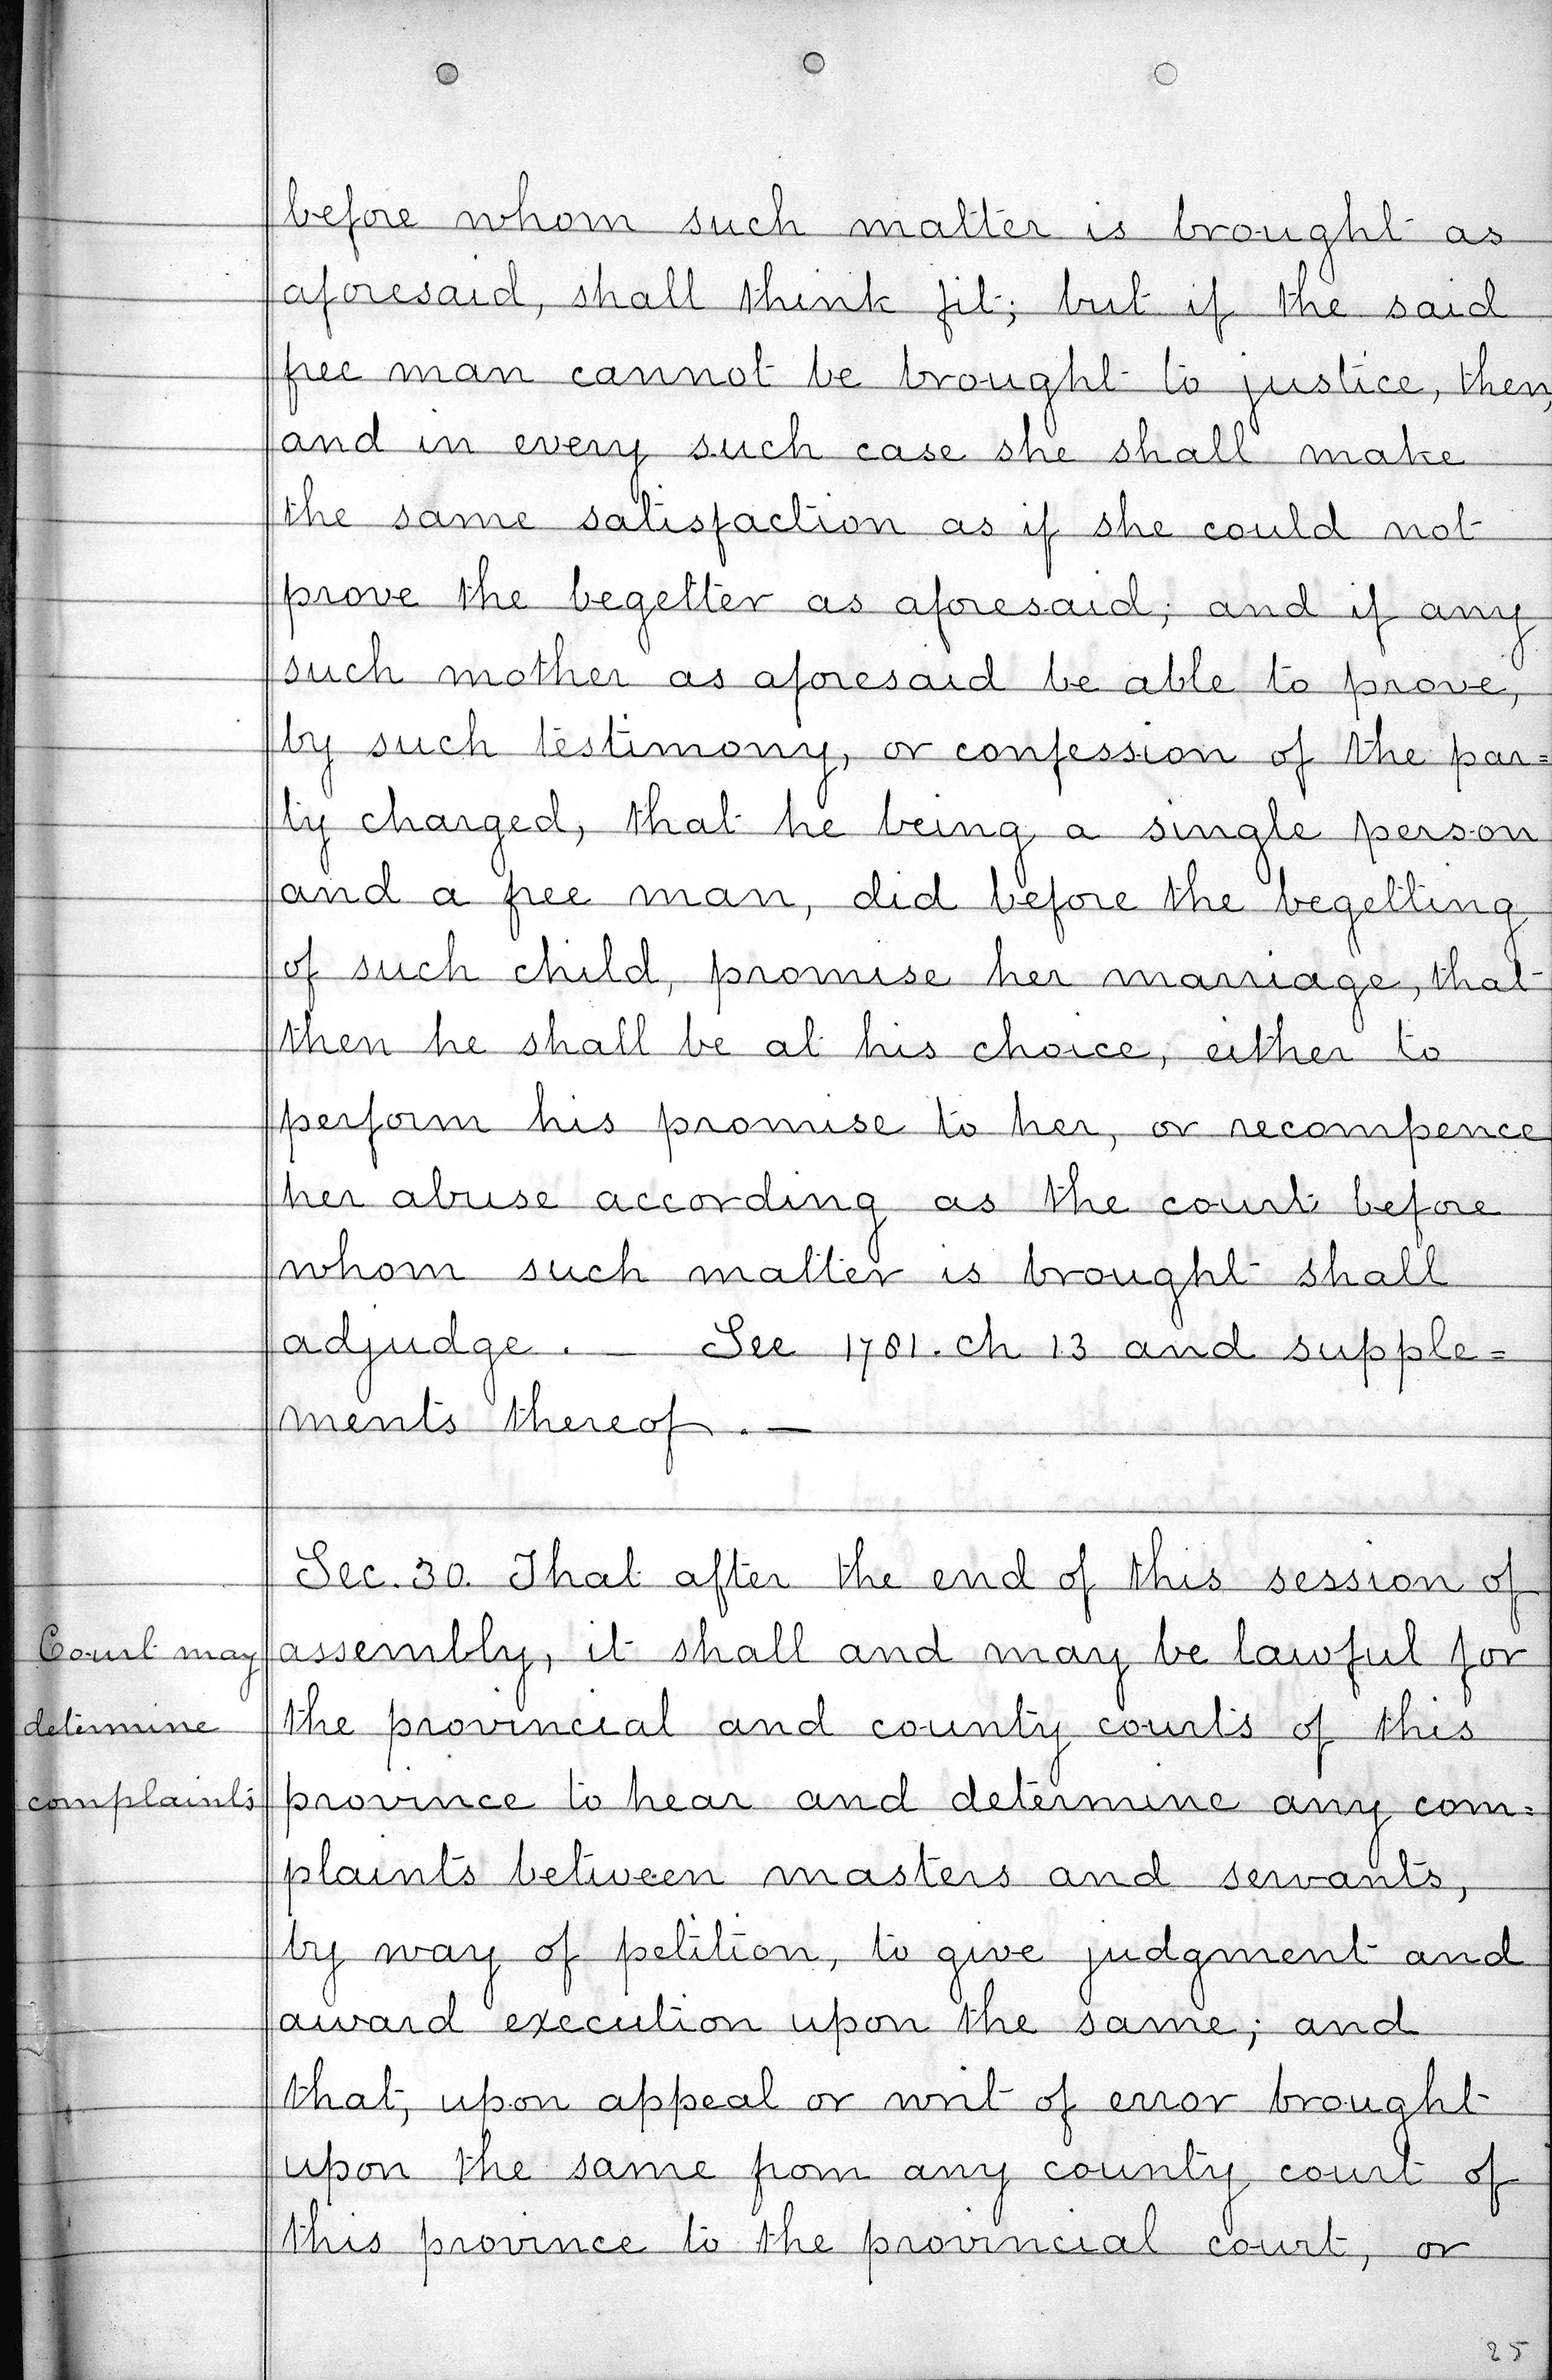 before whom such matter is brought as
aforesaid, shall think fit; but if the said
free man cannot be brought to justice, then,
and in every such case she shall make
the same satisfaction as if she could not
prove the begetter as aforesaid; and if any
such mother as aforesaid be able to prove,
by such testimony, or confession of the par=
ty charged, that he being a single person
and a free man, did before the begetting
of such child, promise her marriage, that
then he shall be at his choice, either to
perform his promise to her, or recompence
her abuse according as the court before
whom such matter is brought shall
adjudge. — See 1781. ch 13 and supple=
ments thereof. —
Sec. 30. That after the end of this session of
Court may
assembly, it shall and may be lawful for
determine
the provincial and county courts of this
complaints
province to hear and determine any com=
plaints between masters and servants,
by way of petition, to give judgment and
award execution upon the same; and
that, upon appeal or writ of error brought
upon the same from any county court of
this province to the provincial court, or
25